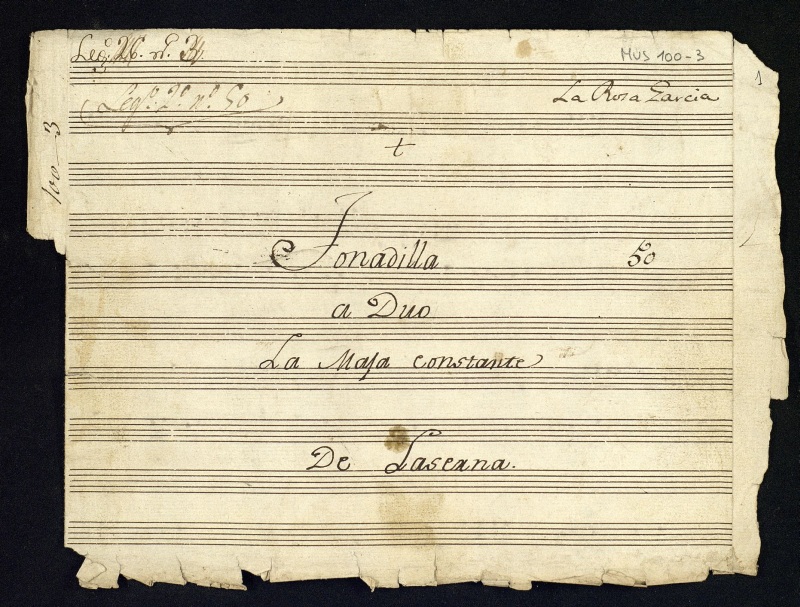 MUS 100-3
1
Legº. 2º. nº. 50
La Rosa Garcia
100-3
+
Tonadilla 50
a Duo
La Maja constante
De Laserna.